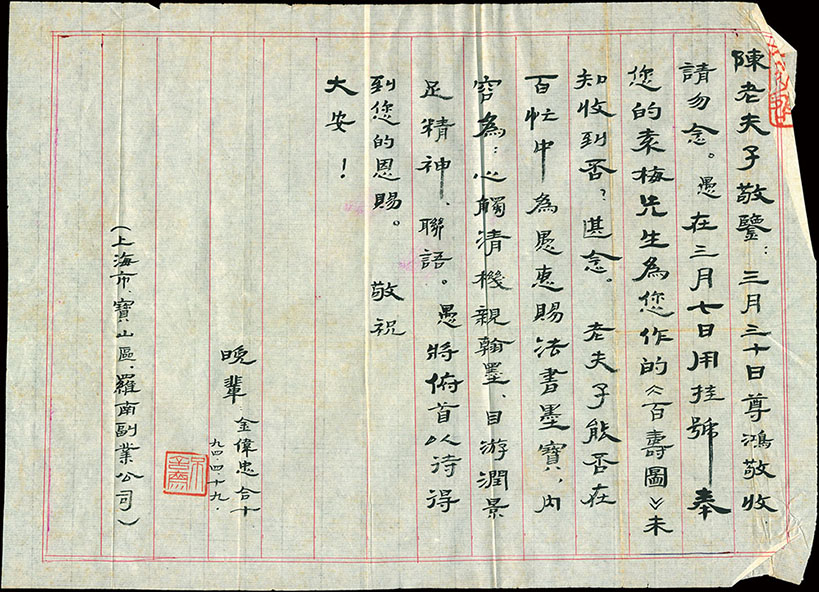 陳老夫子敬鑒：三月三十日尊鴻敬收
請勿念。愚在三月七日用挂號奉
您的袁梅先生為您作的《百壽圖》未
知收到否？堪念。 老夫子能否在
百忙中為愚惠賜法書墨寶，內
容為：心觸清機親翰墨、目游潤景
足精神、聯語。愚將俯首以待得
到您的恩賜。 敬祝
大安！
晚輩 金偉忠合十
九四.四十九.
（上海市、寶山區.羅南副業公司）